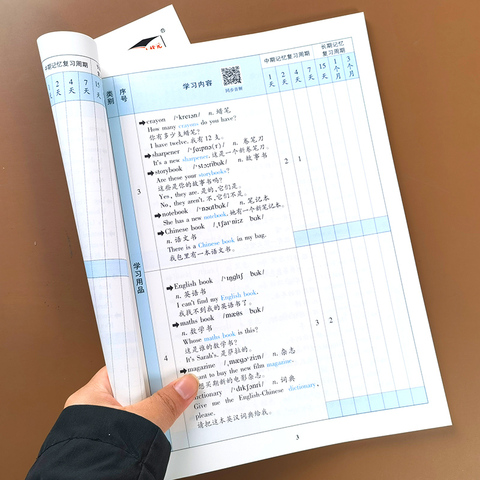 状元
中期记忆复习周期
2天 4天 7天
类别 序号 学习内容 同步音频 中期记忆复习周期 长期记忆复习周期
1天 2天 4天 7天 15天 1个月 3个月
学习用品
3 2 1
crayon /ˈkreɪən/ n. 蜡笔
How many crayons do you have?
你有多少支蜡笔?
I have twelve. 我有 12 支。
sharpener /ˈʃɑːpnə(r)/ n. 卷笔刀
It's a new sharpener. 这是一个新卷笔刀。
storybook /ˈstɔːribʊk/ n. 故事书
Are these your storybooks?
这些是你的故事书吗?
Yes, they are. 是的,它们是。
No, they aren't. 不,它们不是。
notebook /ˈnəʊtbʊk/ n. 笔记本
She has a new notebook. 她有一个新笔记本。
Chinese book /ˌtʃaɪˈniːz bʊk/
n. 语文书
There is a Chinese book in my bag.
我包里有一本语文书。
4 3 2
English book /ˈɪŋɡlɪʃ bʊk/
n. 英语书
I can't find my English book.
我找不到我的英语书了。
maths book /mæθs bʊk/
n. 数学书
Whose maths book is this?
这是谁的数学书?
It's Sarah's. 是萨拉的。
magazine /ˌmæɡəˈziːn/ n. 杂志
want to buy the new film magazine.
想买期新的电影杂志。
dictionary /ˈdɪkʃənri/ n. 词典
Give me the English-Chinese dictionary,
please.
请把这本英汉词典给我。
3